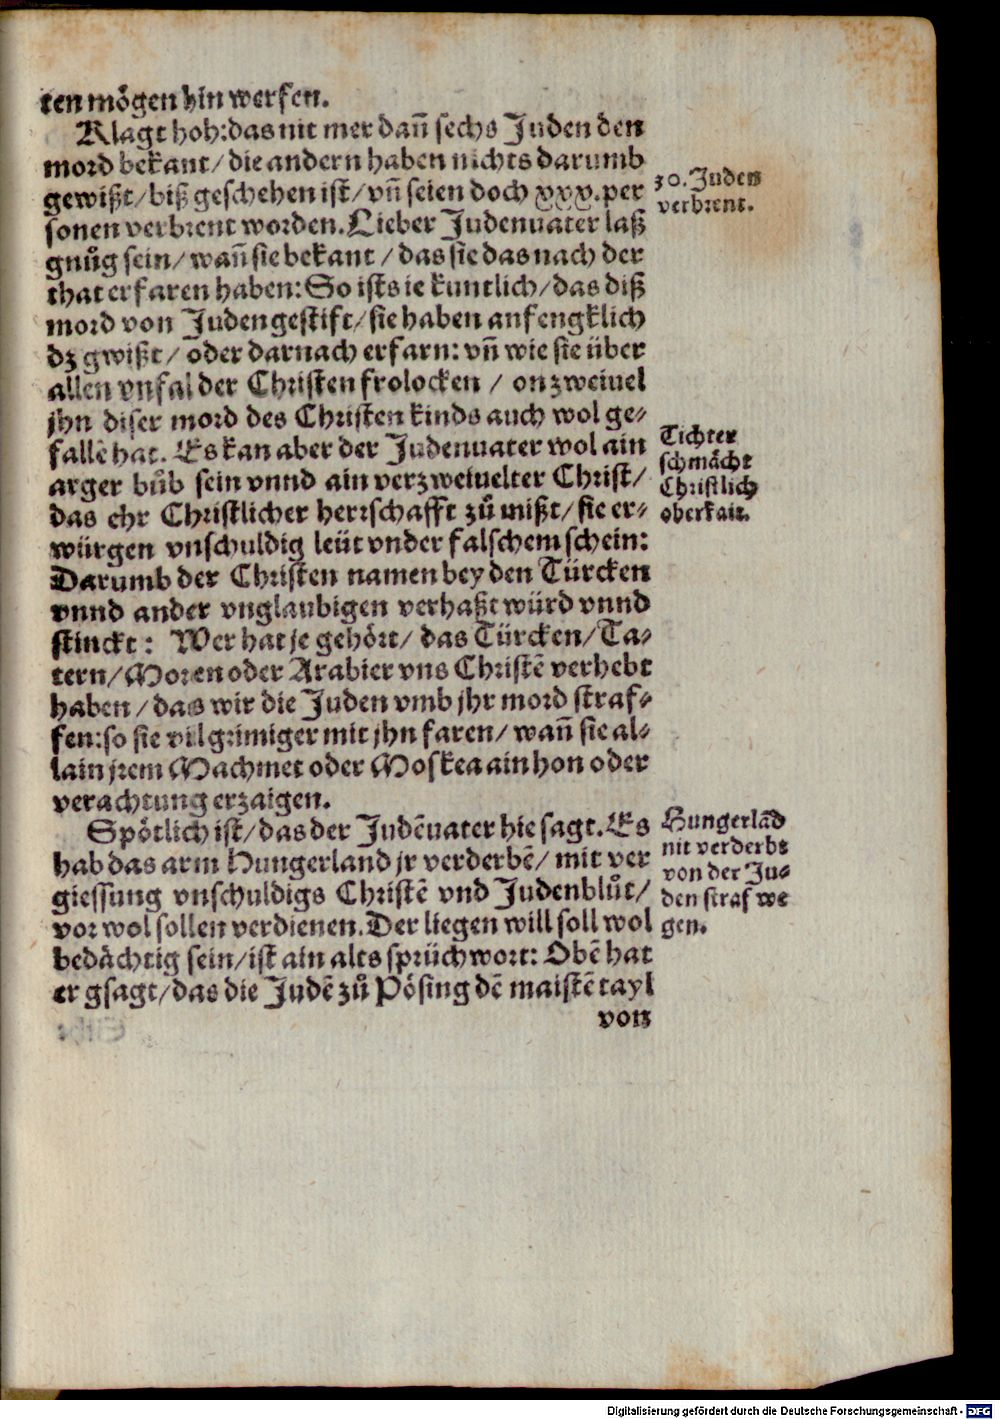 ten mögen hin werfen.
Klagt hoh:das nit mer dañ sechs Juden den
mord bekant/die andern haben nichts darumb
gewißt/biß geschehen ist/vñ seien doch xxx.per
sonen verbrent worden.Lieber Judenuater laß
gnůg sein/wañ sie bekant/das sie das nach der
that erfaren haben:So ists ie kuntlich/das diß
mord von Juden gestift/sie haben anfengklich
dz gwißt/oder darnach erfarn:vñ wie sie über
allen vnfal der Christen frolocken/on zweiuel
jhn diser mord des Christen kinds auch wol ge-
fallē hat. Es kan aber der Judenuater wol ain
arger bůb sein vnnd ain verzweiuelter Christ/
das ehr Christlicher herrschafft zů mißt/sie er-
würgen vnschuldig leüt vnder falschem schein:
Darumb der Christen namen bey den Türcken
vnnd ander vnglaubigen verhaßt würd vnnd
stinckt: Wer hat je gehört/das Türcken/Ta-
tern/Moren oder Arabier vns Christē verhebt
haben/das wir die Juden vmb jhr mord straf-
fen:so sie vil grimiger mit jhn faren/wañ sie al-
lain jrem Machmet oder Moskea ain hon oder
verachtung erzaigen.
Spötlich ist/das der Judēuater hie sagt.Es
hab das arm Hungerland jr verderbē/mit ver
giessung vnschuldigs Christē vnd Judenblůt/
vor wol sollen verdienen.Der liegen will soll wol
bedächtig sein/ist ain alts sprüchwort: Obē hat
er gsagt/das die Judē zů Pösing dē maistē tayl
von
30.Juden
verbrent.
Tichter
schmächt
Christlich
oberkait.
Hungerlād
nit verderbt
von der Ju-
den straf we
gen.
Digitalisierung gefördert durch die Deutsche Forschungsgemeinschaft - DFG